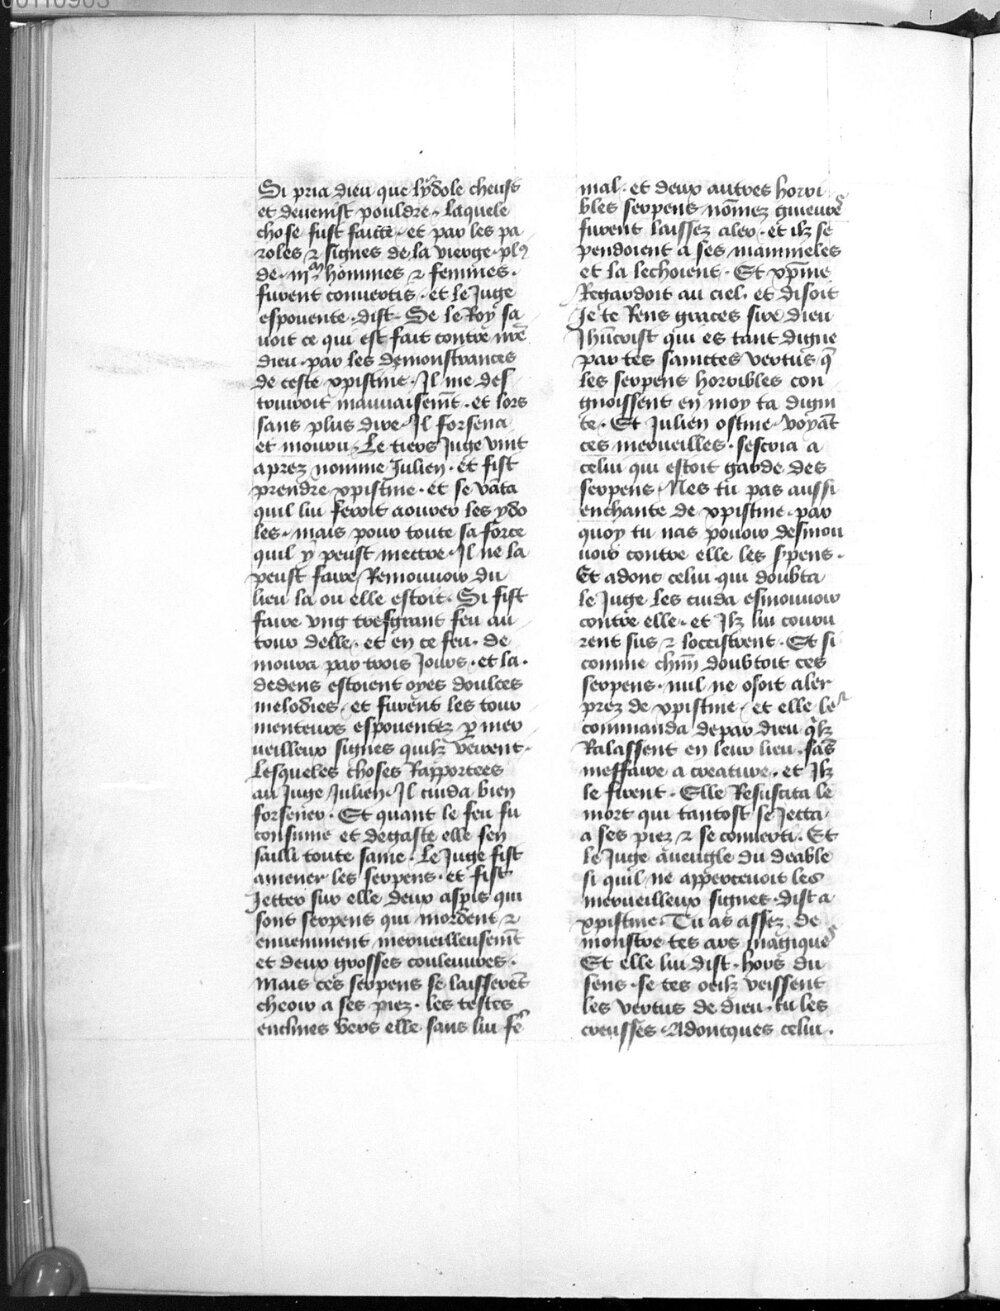 00110903
Si pria dieu que lydole cheust
et devenist pouldre. Laquele
chose fust faitte. et par les pa
roles ⁊ signes de la vierge. plꝰ
de .iijᵐ. hommes ⁊ femmes.
furent convertis. et le Juge
espovente. dist. Se le Roy sa
voit ce qui est fait contre nr̄e
dieu. par les demonstrances
de ceste xpistine. Il me des
truiroit mauvaisemt̄. et lors
sans plus dire. Il forsena
et mouru. Le tiers Juge vint
aprez nomme Julien. et fist
prendre xpistine. et se vāta
quil lui feroit aourer les ydo
les. mais pour toute sa force
quil y peust mettre. Il ne la
peust faire Remouvoir du
lieu la ou elle estoit. Si fist
faire ung tresgrant feu au
tour delle. et en ce feu. de
moura par trois Jours. et la.
dedens estoient oyes doulces
melodies. et furent les tour
menteurs espoventez p̱ mer
veilleux signes quilz veirent.
Lesqueles choses Rapportees
au Juge Julien. Il cuida bien
forsener. Et quant le feu fu
consume et degaste elle sen
sailli toute saine. Le Juge fist
amener les serpens. et fist
Jetter sur elle deux aspis qui
sont serpens qui mordent ⁊
enveniment merveilleusemt̄
et deux grosses couleuvres.
Mais ces serpens se laisserēt
cheoir a ses piez. les testes
enclines vers elle sans lui fē
mal. et deux autres horri
bles serpens nōmez guievres
furent laissez aler. et ilz se
pendoient a ses mammeles
et la lechoient. Et xp̄ine
Regardoit au ciel. et disoit
Je te Rens graces sire dieu
Jhūcrist qui es tant digne
par tes sainctes vertus q̄
les serpens horribles con
gnoissent en moy ta digni
te. Et Julien ostine. voyāt
ces merveilles. sescria a
celui qui estoit garde des
serpens. Nes tu pas aussi
enchante de xpistine. par
quoy tu nas pouoir desmou
voir contre elle les s̱pens.
Et adonc celui qui doubta
le Juge les cuida esmouvoir
contre elle. et Ilz lui couru
rent sus ⁊ loccistrent. Et si
comme chūn doubtoit ces
serpens. nul ne osoit aler
prez de xpistine. et elle leʳ
commanda depar dieu q̄lz
Ralassent en leur lieu. sās
meffaire a creature. et Ilz
le firent. Elle Resuscita le
mort qui tantost se Jetta
a ses piez ⁊ se converti. Et
le Juge aveugle du deable
si quil ne appercevoit les
merveilleux signes. dist a
xpistine. Tu as assez de
monstre tes ars magiques
Et elle lui dist. hors du
sens. se tes oeilz veissent
les vertus de dieu. tu les
creusses. Adoncques celui.